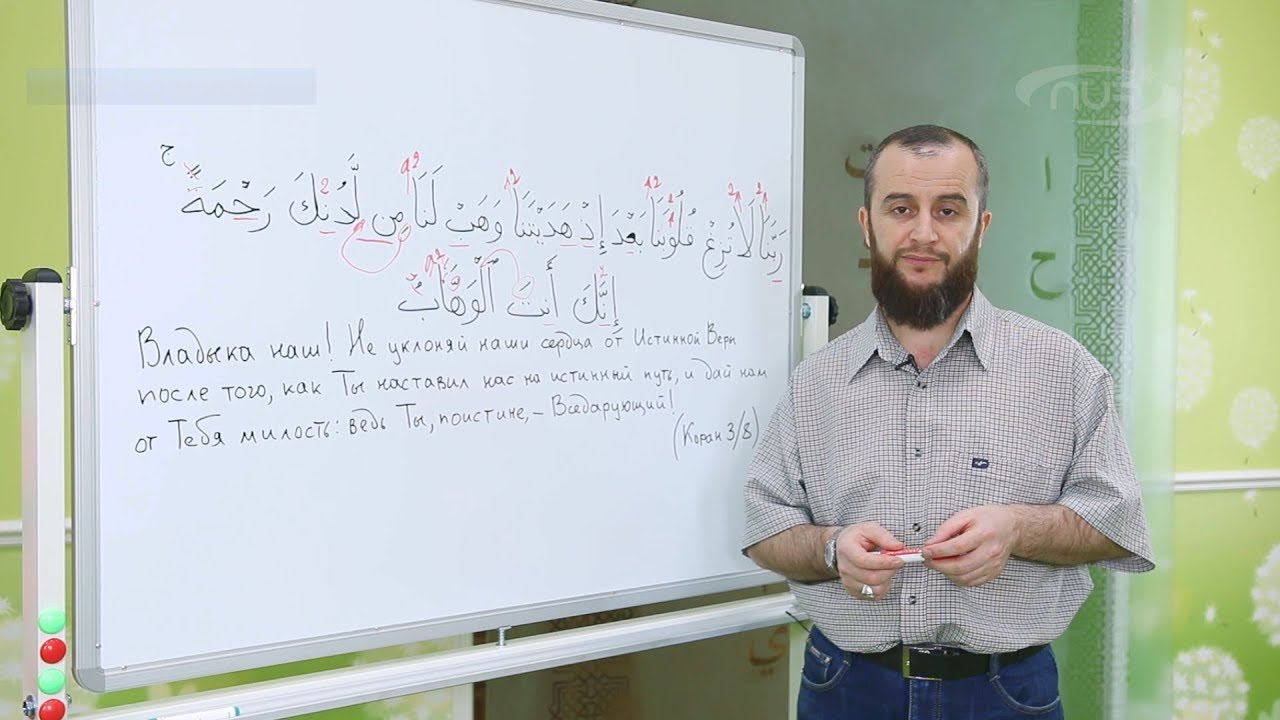 رَبَّنَا لَا تُزِغْ قُلُوبَنَا بَعْدَ إِذْ هَدَيْتَنَا وَهَبْ لَنَا مِن لَّدُنكَ رَحْمَةً ج
إِنَّكَ أَنتَ الْوَهَّابُ
Владыка наш! Не уклоняй наши сердца от Истинной Веры
после того, как Ты наставил нас на истинный путь, и дай нам
от Тебя милость: ведь Ты, поистине, – Вседарующий!
(Коран 3/8)